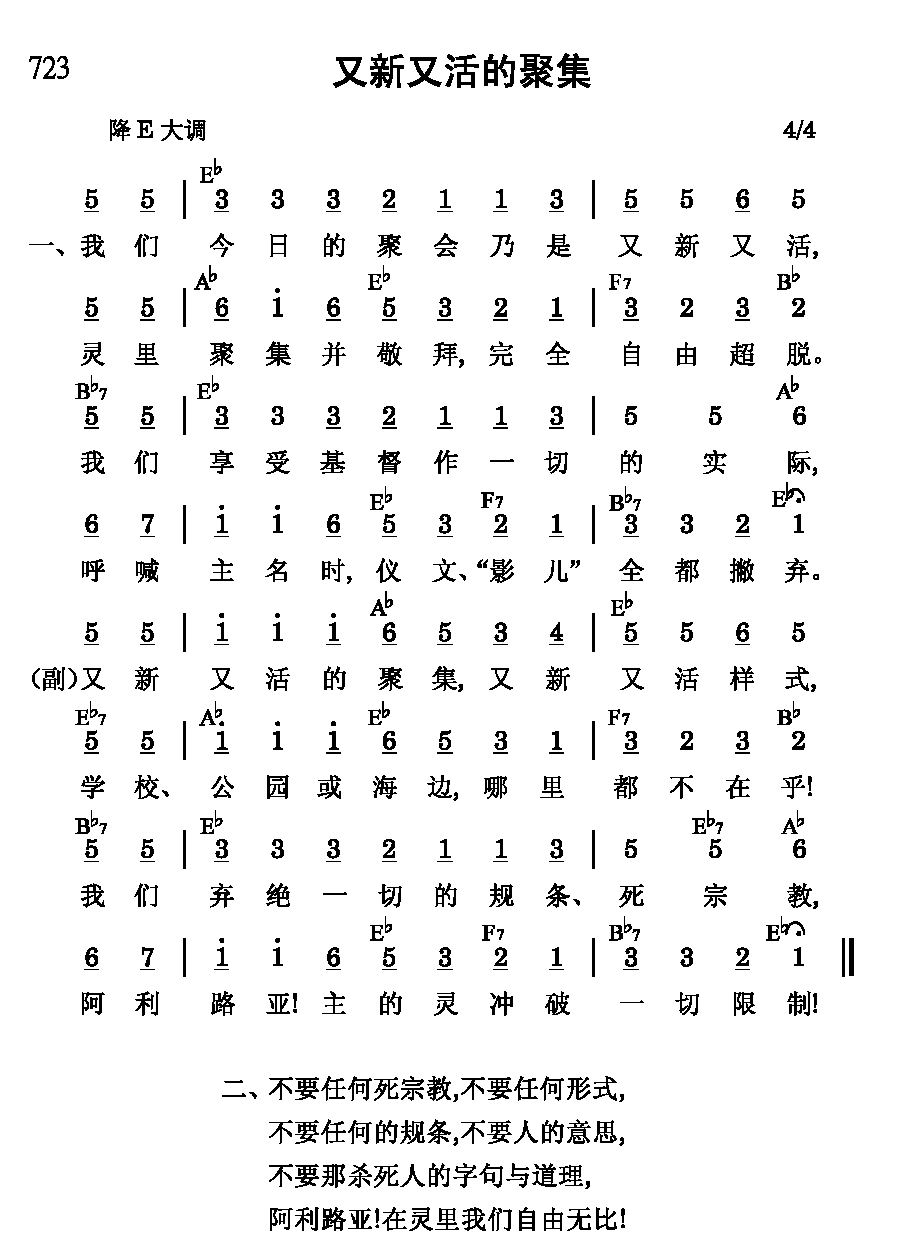 723 又新又活的聚集
降E大调 4/4
E♭
5 5 | 3 3 3 2 1 1 3 | 5 5 6 5
一、我们 今日的聚会乃是 又新又活,
A♭ E♭ F7 B♭
5 5 | 6 i 6 5 3 2 1 | 3 2 3 2
灵里 聚集并敬拜,完全 自由超脱。
B♭7 E♭ A♭
5 5 | 3 3 3 2 1 1 3 | 5 5 6
我们 享受基督作一切 的实际,
E♭ F7 B♭7 E♭
6 7 | i i 6 5 3 2 1 | 3 3 2 1
呼喊 主名时,仪文、“影儿” 全都撇弃。
A♭ E♭
5 5 | i i i 6 5 3 4 | 5 5 6 5
(副)又新 又活的聚集,又新 又活样式,
E♭7 A♭ E♭ F7 B♭
5 5 | i i i 6 5 3 1 | 3 2 3 2
学校、 公园或海边,哪里 都不在乎!
B♭7 E♭ E♭7 A♭
5 5 | 3 3 3 2 1 1 3 | 5 5 6
我们 弃绝一切的规条、 死宗教,
E♭ F7 B♭7 E♭
6 7 | i i 6 5 3 2 1 | 3 3 2 1 ‖
阿利 路亚!主的灵冲破 一切限制!
二、不要任何死宗教,不要任何形式,
不要任何的规条,不要人的意思,
不要那杀死人的字句与道理,
阿利路亚!在灵里我们自由无比!